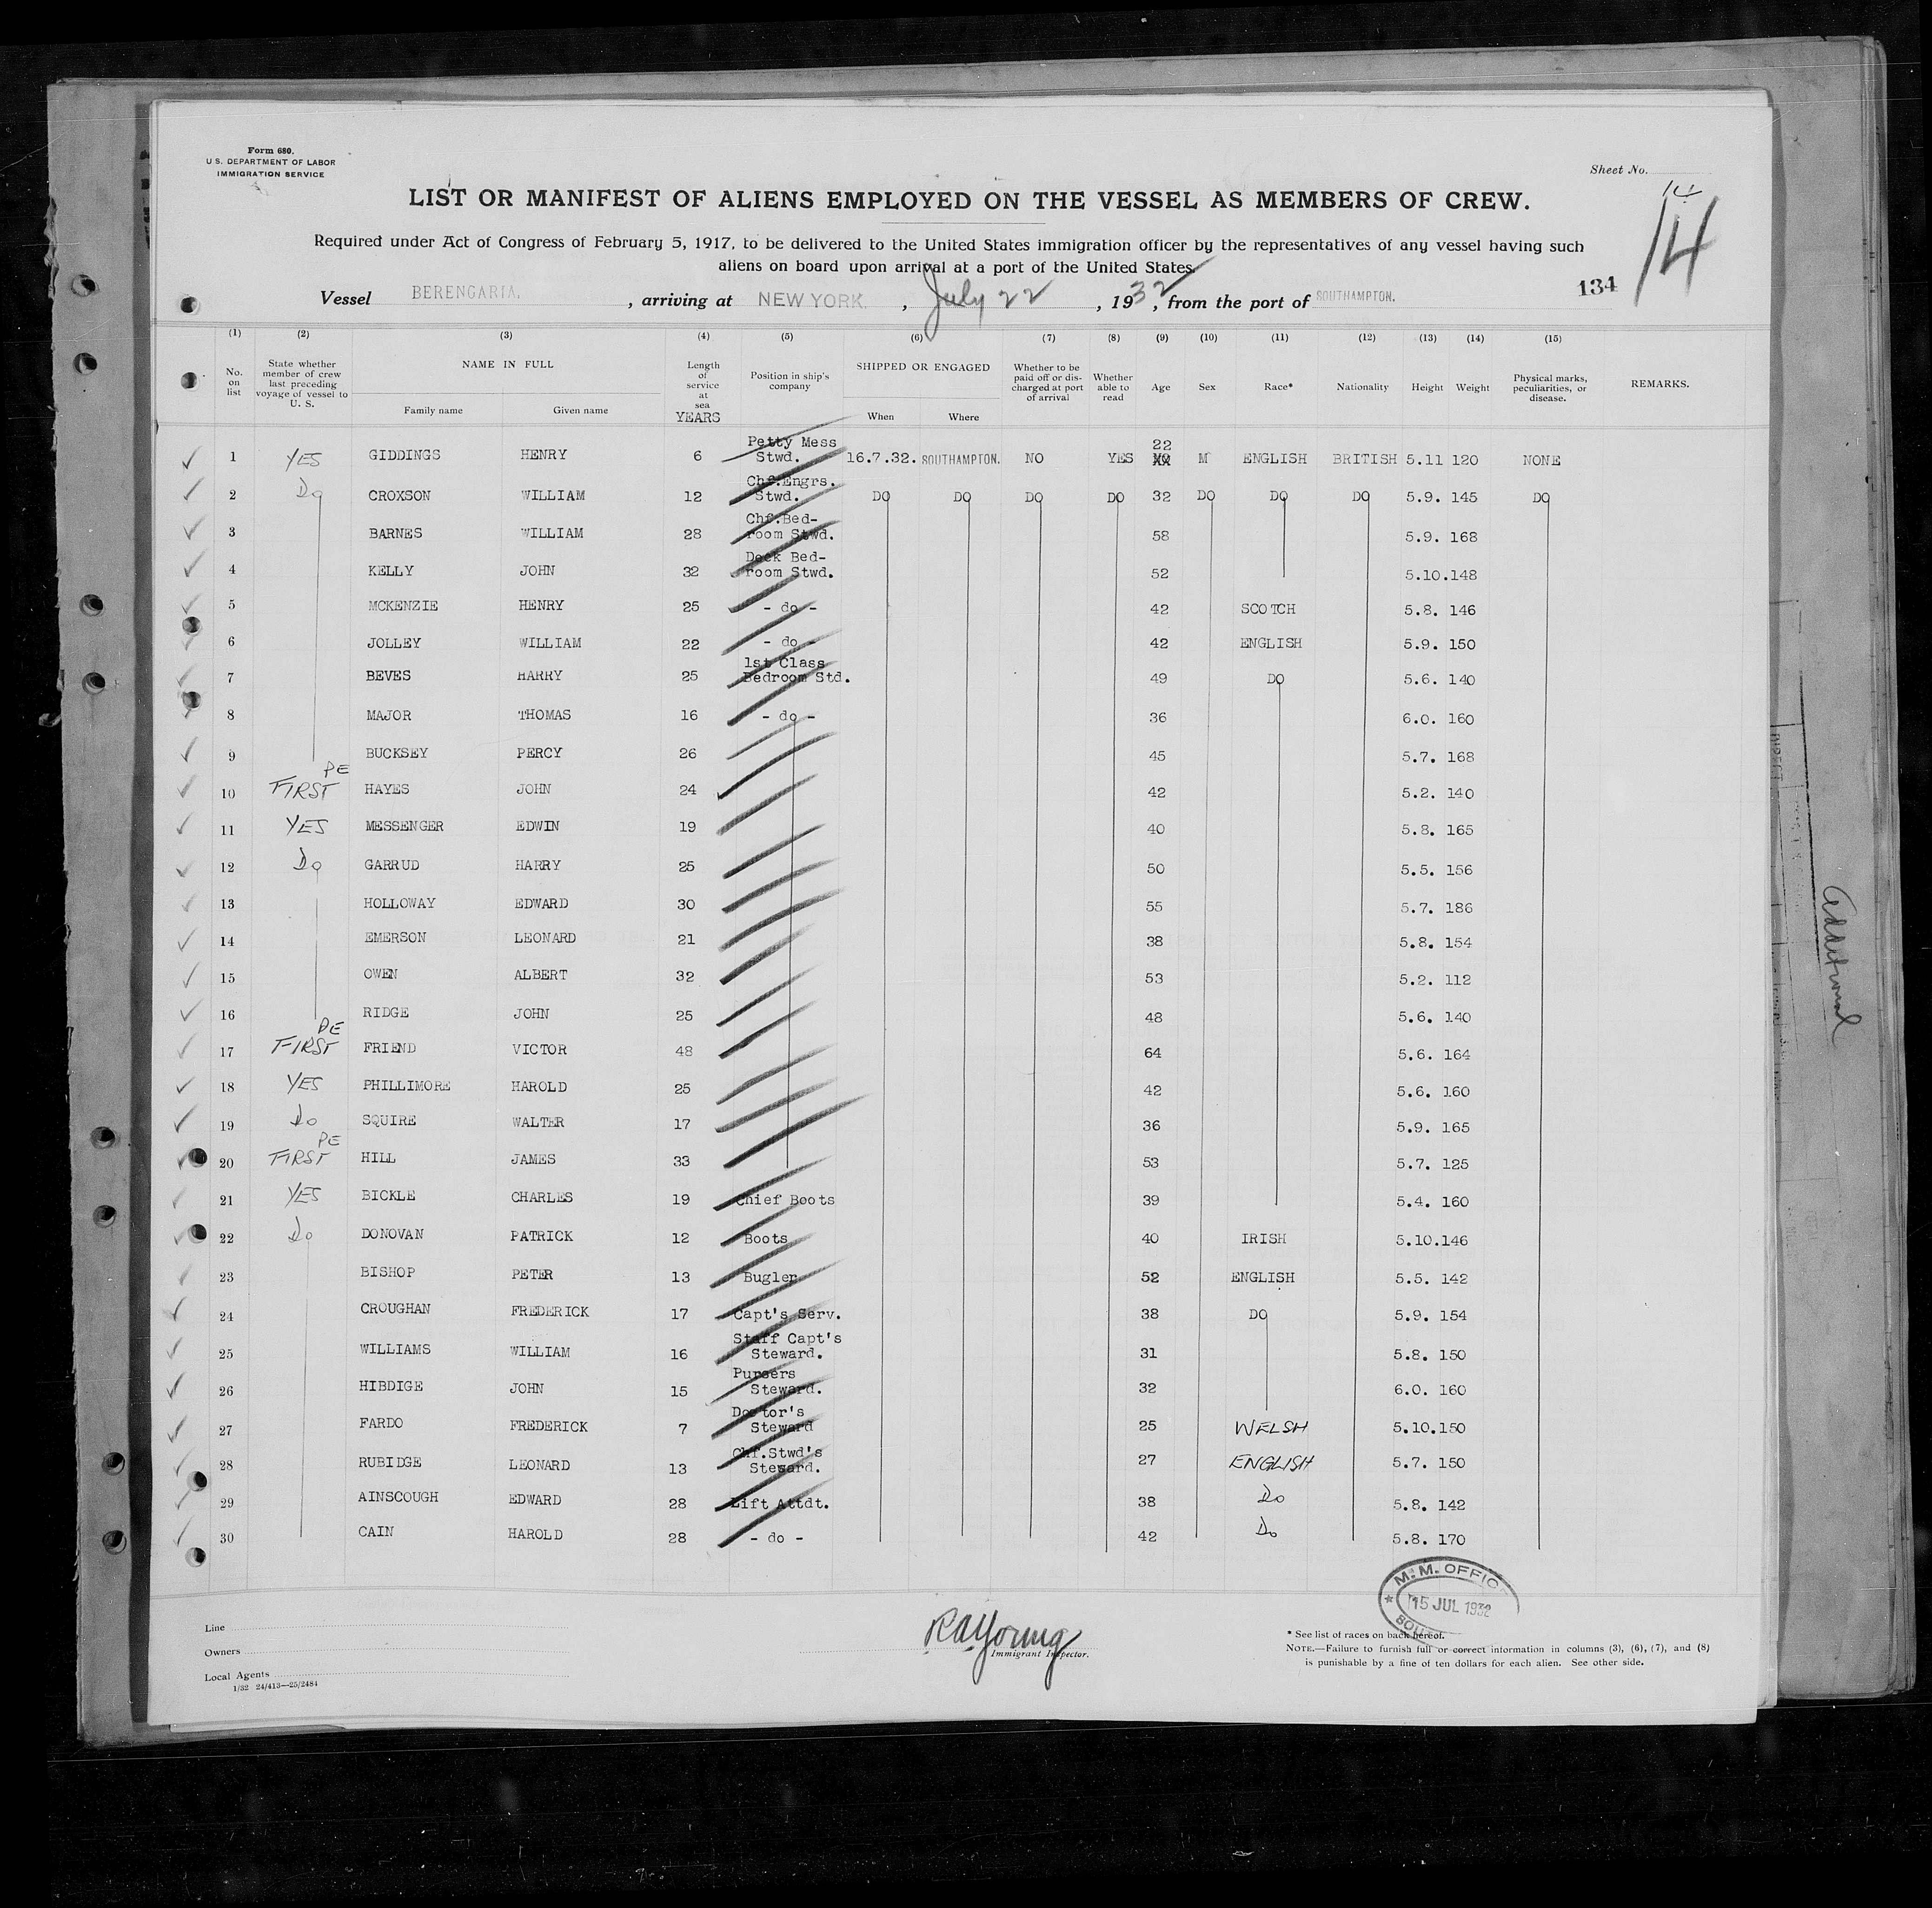 Form 680.
U.S. DEPARTMENT OF LABOR
IMMIGRATION SERVICE
Sheet No.
14
14
LIST OR MANIFEST OF ALIENS EMPLOYED ON THE VESSEL AS MEMBERS OF CREW.
Required under Act of Congress of February 5, 1917, to be delivered to the United States immigration officer by the representatives of any vessel having such
aliens on board upon arrival at a port of the United States.
134
Vessel BERENGARIA. , arriving at NEW YORK. , July 22 , 1932, from the port of SOUTHAMPTON.
(1) (2) (3) (4) (5) (6) (7) (8) (9) (10) (11) (12) (13) (14) (15)
No. on list State whether member of crew last preceding voyage of vessel to U. S. NAME IN FULL Family name Given name Length of service at sea YEARS Position in ship's company SHIPPED OR ENGAGED When Where Whether to be paid off or discharged at port of arrival Whether able to read Age Sex Race* Nationality Height Weight Physical marks, peculiarities, or disease. REMARKS.
1 YES GIDDINGS HENRY 6 Petty Mess Stwd. 16.7.32. SOUTHAMPTON. NO YES 22 M ENGLISH BRITISH 5.11 120 NONE
2 Do CROXSON WILLIAM 12 Chf.Engrs. Stwd. DO DO DO DO 32 DO DO DO 5.9. 145 DO
3 BARNES WILLIAM 28 Chf.Bed-room Stwd. 58 5.9. 168
4 KELLY JOHN 32 Deck Bed-room Stwd. 52 5.10.148
5 MCKENZIE HENRY 25 - do - 42 SCOTCH 5.8. 146
6 JOLLEY WILLIAM 22 - do - 42 ENGLISH 5.9. 150
7 BEVES HARRY 25 1st Class Bedroom Std. 49 DO 5.6. 140
8 MAJOR THOMAS 16 - do - 36 6.0. 160
9 BUCKSEY PERCY 26 45 5.7. 168
10 FIRST PE HAYES JOHN 24 42 5.2. 140
11 YES MESSENGER EDWIN 19 40 5.8. 165
12 Do GARRUD HARRY 25 50 5.5. 156
13 HOLLOWAY EDWARD 30 55 5.7. 186
14 EMERSON LEONARD 21 38 5.8. 154
15 OWEN ALBERT 32 53 5.2. 112
16 RIDGE JOHN 25 48 5.6. 140
17 FIRST PE FRIEND VICTOR 48 64 5.6. 164
18 YES PHILLIMORE HAROLD 25 42 5.6. 160
19 Do SQUIRE WALTER 17 36 5.9. 165
20 FIRST PE HILL JAMES 33 53 5.7. 125
21 YES BICKLE CHARLES 19 Chief Boots 39 5.4. 160
22 Do DONOVAN PATRICK 12 Boots 40 IRISH 5.10.146
23 BISHOP PETER 13 Bugler 52 ENGLISH 5.5. 142
24 CROUGHAN FREDERICK 17 Capt's Serv. 38 DO 5.9. 154
25 WILLIAMS WILLIAM 16 Staff Capt's Steward. 31 5.8. 150
26 HIBDIGE JOHN 15 Pursers Steward. 32 6.0. 160
27 FARDO FREDERICK 7 Doctor's Steward 25 WELSH 5.10.150
28 RUBIDGE LEONARD 13 Chf.Stwd's Steward. 27 ENGLISH 5.7. 150
29 AINSCOUGH EDWARD 28 Lift Attdt. 38 Do 5.8. 142
30 CAIN HAROLD 28 - do - 42 Do 5.8. 170
M.M. OFFIC
15 JUL 1932
SOU
Line
Owners
Local Agents
1/32 24/413—25/2484
R A Young
Immigrant Inspector.
* See list of races on back hereof.
NOTE.—Failure to furnish full or correct information in columns (3), (6), (7), and (8)
is punishable by a fine of ten dollars for each alien. See other side.
Additional